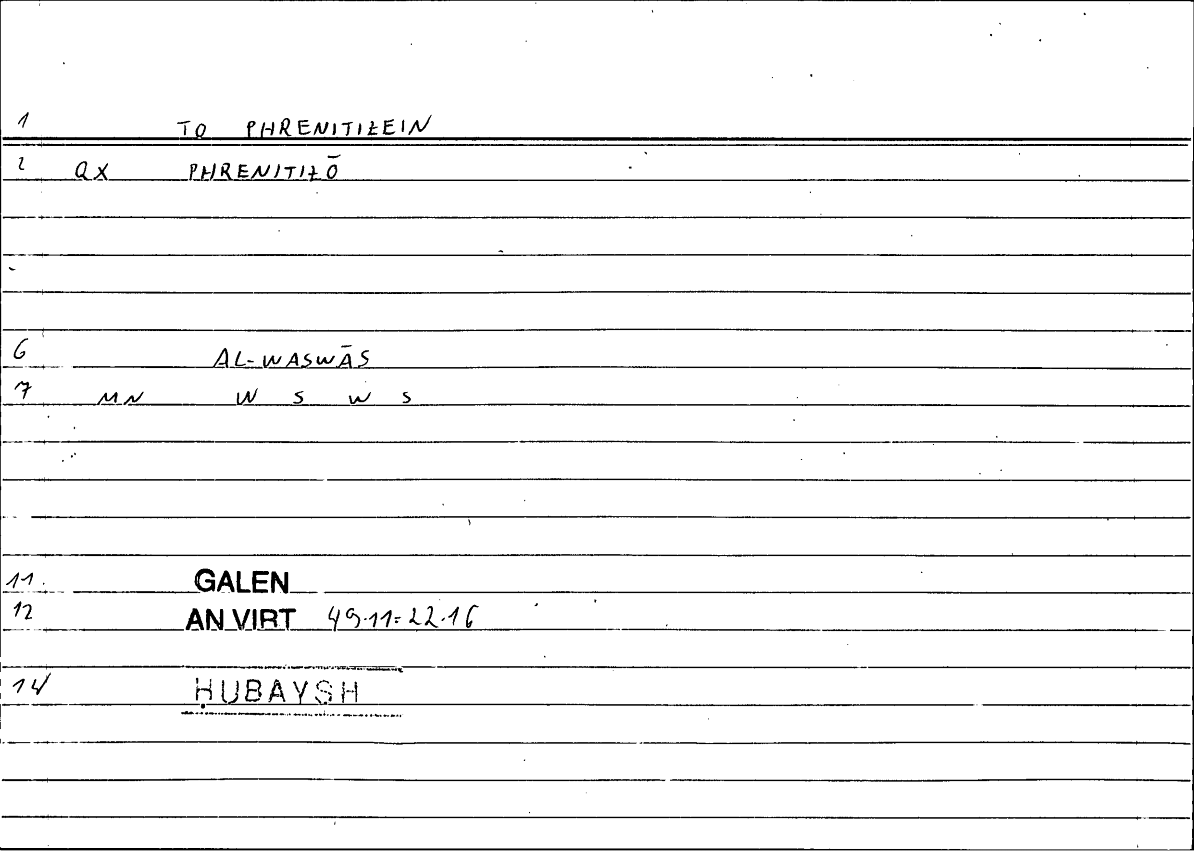 1 TO PHRENITIZEIN
2 QX PHRENITIZŌ
6 AL-WASWĀS
7 MN W S W S
11. GALEN
12 AN VIRT 49.11=22.16
14 ḤUBAYSH